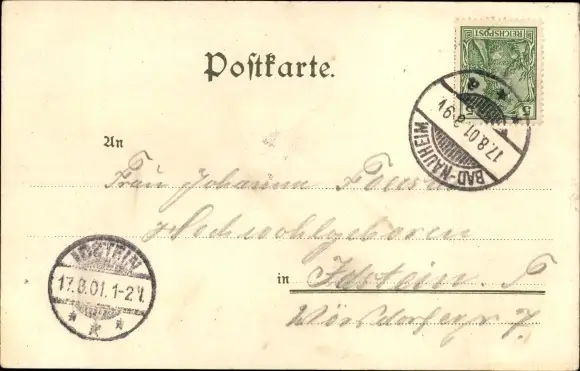 REICHSPOST
5
Postkarte.
BAD-NAUHEIM
17.8.01.
An
Frau Johanna
Hochwohlgeboren
IDSTEIN
17.8.01. 1-2 N.
in Idstein. T